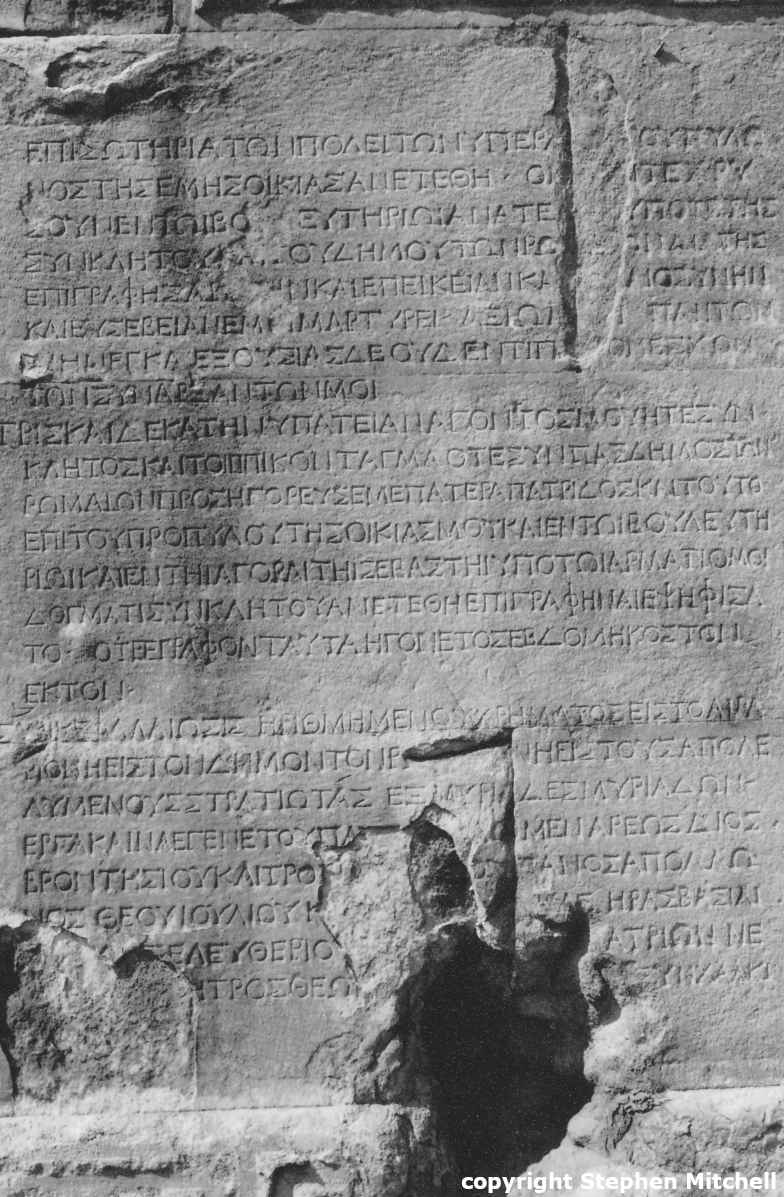 ΕΠΙΣΩΤΗΡΙΑΤΩΝΠΟΛΕΙΤΩΝΥΠΕΡΑ ΟΥΠΥΛΩ
ΝΟΣΤΗΣΕΜΗΣΟΙΚΙΑΣΑΝΕΤΕΘΗ ΟΠ ΝΤΕΧΡΥ
ΣΟΥΝΕΝΤΩΙΒΟ ΕΥΤΗΡΙΩΙΑΝΑΤΕ ΥΠΟΤΕΤΗΣ
ΣΥΝΚΛΗΤΟΥΚΑ ΟΥΔΗΜΟΥΤΩΝΡΩ ΩΝΔΙΑΤΗΣ
ΕΠΙΓΡΑΦΗΣΑΡ ΗΝΚΑΙΕΠΕΙΚΕΙΑΝΚΑ ΑΙΟΣΥΝΗΝ
ΚΑΙΕΥΣΕΒΕΙΑΝΕΜΟΙΜΑΡΤΥΡΕΙ ΑΞΙΩΜ Ι ΠΑΝΤΩΝ
ΔΙΗΝΕΓΚΑ ΕΞΟΥΣΙΑΣΔΕΟΥΔΕΝΤΙΠ ΟΝΕΣΧΟΝ
ΤΩΝΣΥΝΑΡΞΑΝΤΩΝΜΟΙ
ΤΡΙΣΚΑΙΔΕΚΑΤΗΝΥΠΑΤΕΙΑΝΑΓΟΝΤΟΣΜΟΥΗΤΕΣΥΝ
ΚΛΗΤΟΣΚΑΙΤΟΙΠΠΙΚΟΝΤΑΓΜΑΟΤΕΣΥΝΠΑΣΔΗΜΟΣΤΩΝ
ΡΩΜΑΙΩΝΠΡΟΣΗΓΟΡΕΥΣΕΜΕΠΑΤΕΡΑΠΑΤΡΙΔΟΣΚΑΙΤΟΥΤΟ
ΕΠΙΤΟΥΠΡΟΠΥΛΟΥΤΗΣΟΙΚΙΑΣΜΟΥΚΑΙΕΝΤΩΙΒΟΥΛΕΥΤΗ
ΡΙΩΙΚΑΙΕΝΤΗΙΑΓΟΡΑΙΤΗΙΣΕΒΑΣΤΗΙΥΠΟΤΩΙΑΡΜΑΤΙΟΜΟΙ
ΔΟΓΜΑΤΙΣΥΝΚΛΗΤΟΥΑΝΕΤΕΘΗΕΠΙΓΡΑΦΗΝΑΙΕΨΗΦΙΣΑ
ΤΟ ΟΤΕΕΓΡΑΦΟΝΤΑΥΤΑΗΓΟΝΕΤΟΣΕΒΔΟΜΗΚΟΣΤΟΝ
ΕΚΤΟΝ
ΚΕΦΑΛΑΙΩΣΙΣ ΗΡΙΘΜΗΜΕΝΟΥΧΡΗΜΑΤΟΣΕΙΣΤΟΑΙΡΑ
ΡΙΟΝΗΕΙΣΤΟΝΔΗΜΟΝΤΟΝΡ ΝΗΕΙΣΤΟΥΣΑΠΟΛΕ
ΛΥΜΕΝΟΥΣΣΤΡΑΤΙΩΤΑΣ ΕΞΜΥΡΙΑΔΕΣΜΥΡΙΑΔΩΝ
ΕΡΓΑΚΑΙΝΑΕΓΕΝΕΤΟΥΠΑ ΜΕΝΑΡΕΩΣΔΙΟΣ
ΒΡΟΝΤΗΣΙΟΥΚΑΙΤΡΟ ΠΑΝΟΣΑΠΟΛΛΩ
ΝΟΣ ΘΕΟΥΙΟΥΛΙΟΥΚ ΗΡΑΣΒΑΣΙΛΙ
ΕΛΕΥΘΕΡΙΟ ΑΤΡΙΩΝ ΝΕ
ΗΤΡΟΣΘΕΩ ΣΥΝΧΑΛΚΙ
copyright Stephen Mitchell